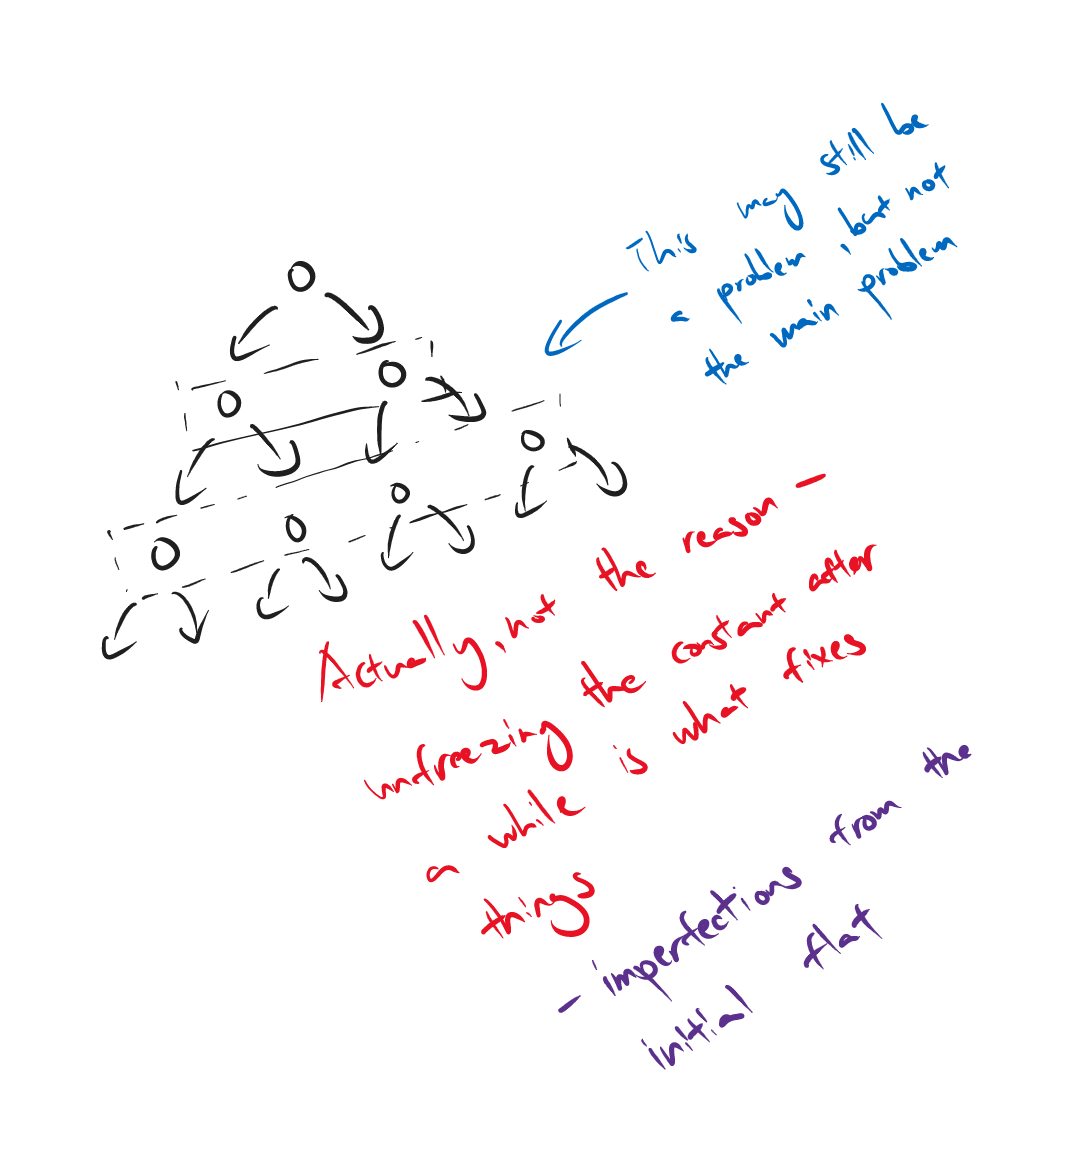 This may still be
a problem, but not
the main problem
Actually, not the reason -
unfreezing the constant after
a while is what fixes
things
- imperfections from the
initial flat